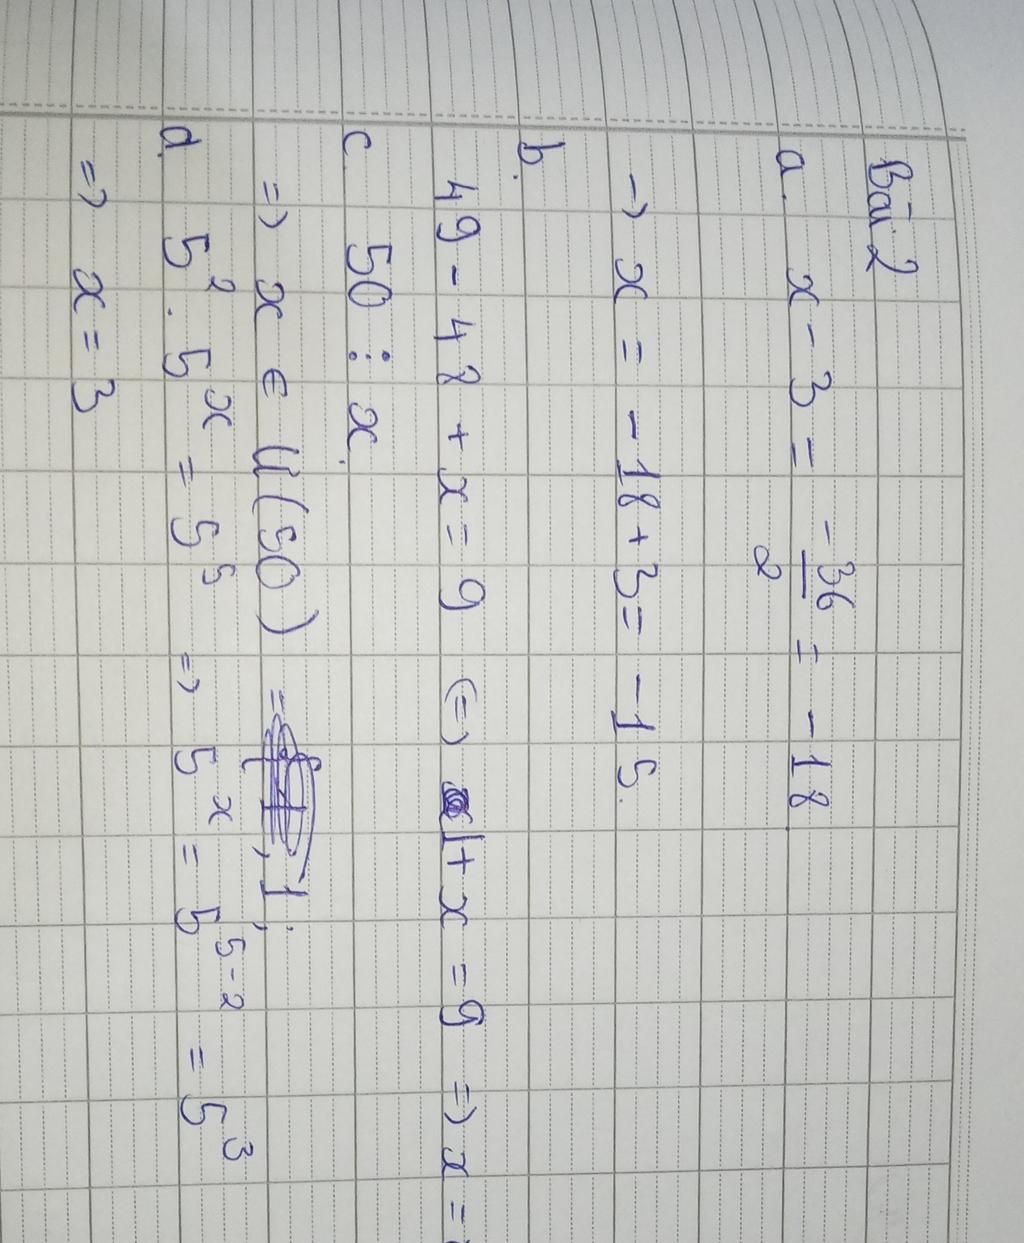 Bài 2
a. x - 3 = -36/2 = -18.
→ x = -18 + 3 = -15.
b.
49 - 48 + x = 9 (=) 1 + x = 9 => x =
c. 50 ⋮ x.
=> x ∈ Ư(50) = , 1;
d. 5² . 5ˣ = 5⁵ => 5ˣ = 5⁵⁻² = 5³
=> x = 3